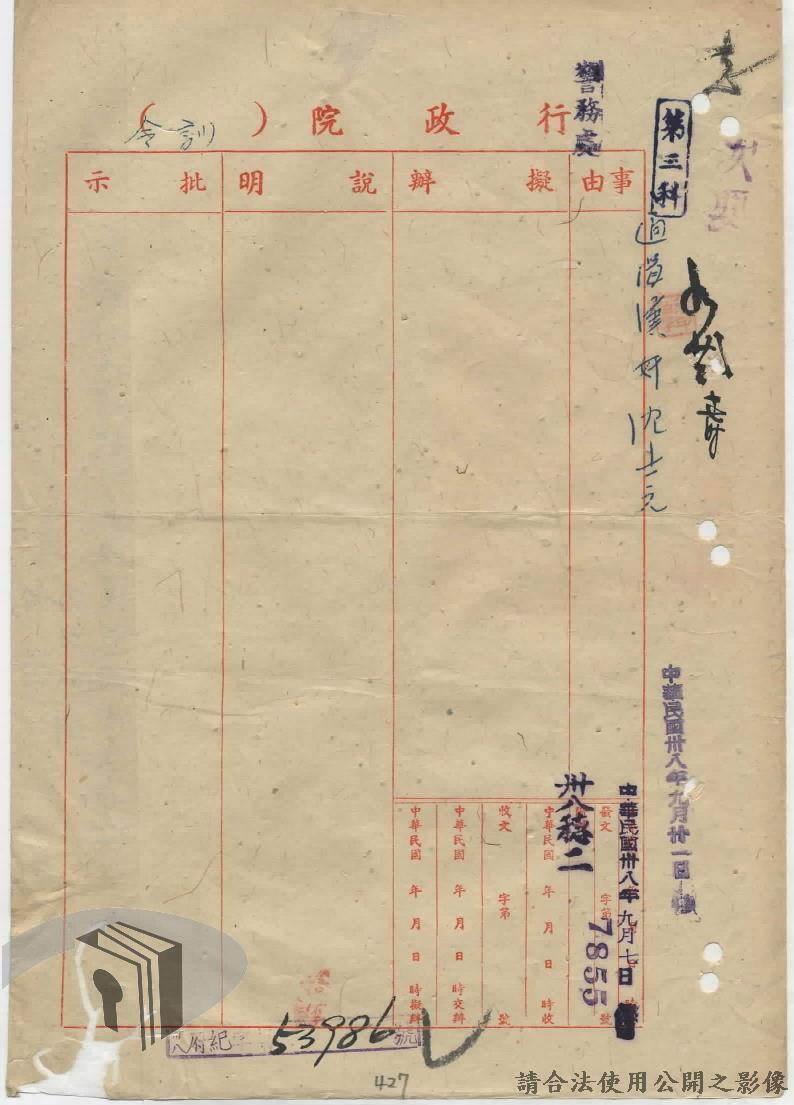 行政院（訓令）
警務處
第三科
事由
擬辦
說明
批示
漢奸沈士元
中華民國卅八年九月廿一日
中華民國卅八年九月七日
發文 字第 7855 號
卅八穗二
中華民國 年 月 日 時收
收文 字第 號
中華民國 年 月 日 時交辦
中華民國 年 月 日 時擬辦
府紀 53986 號
427
請合法使用公開之影像